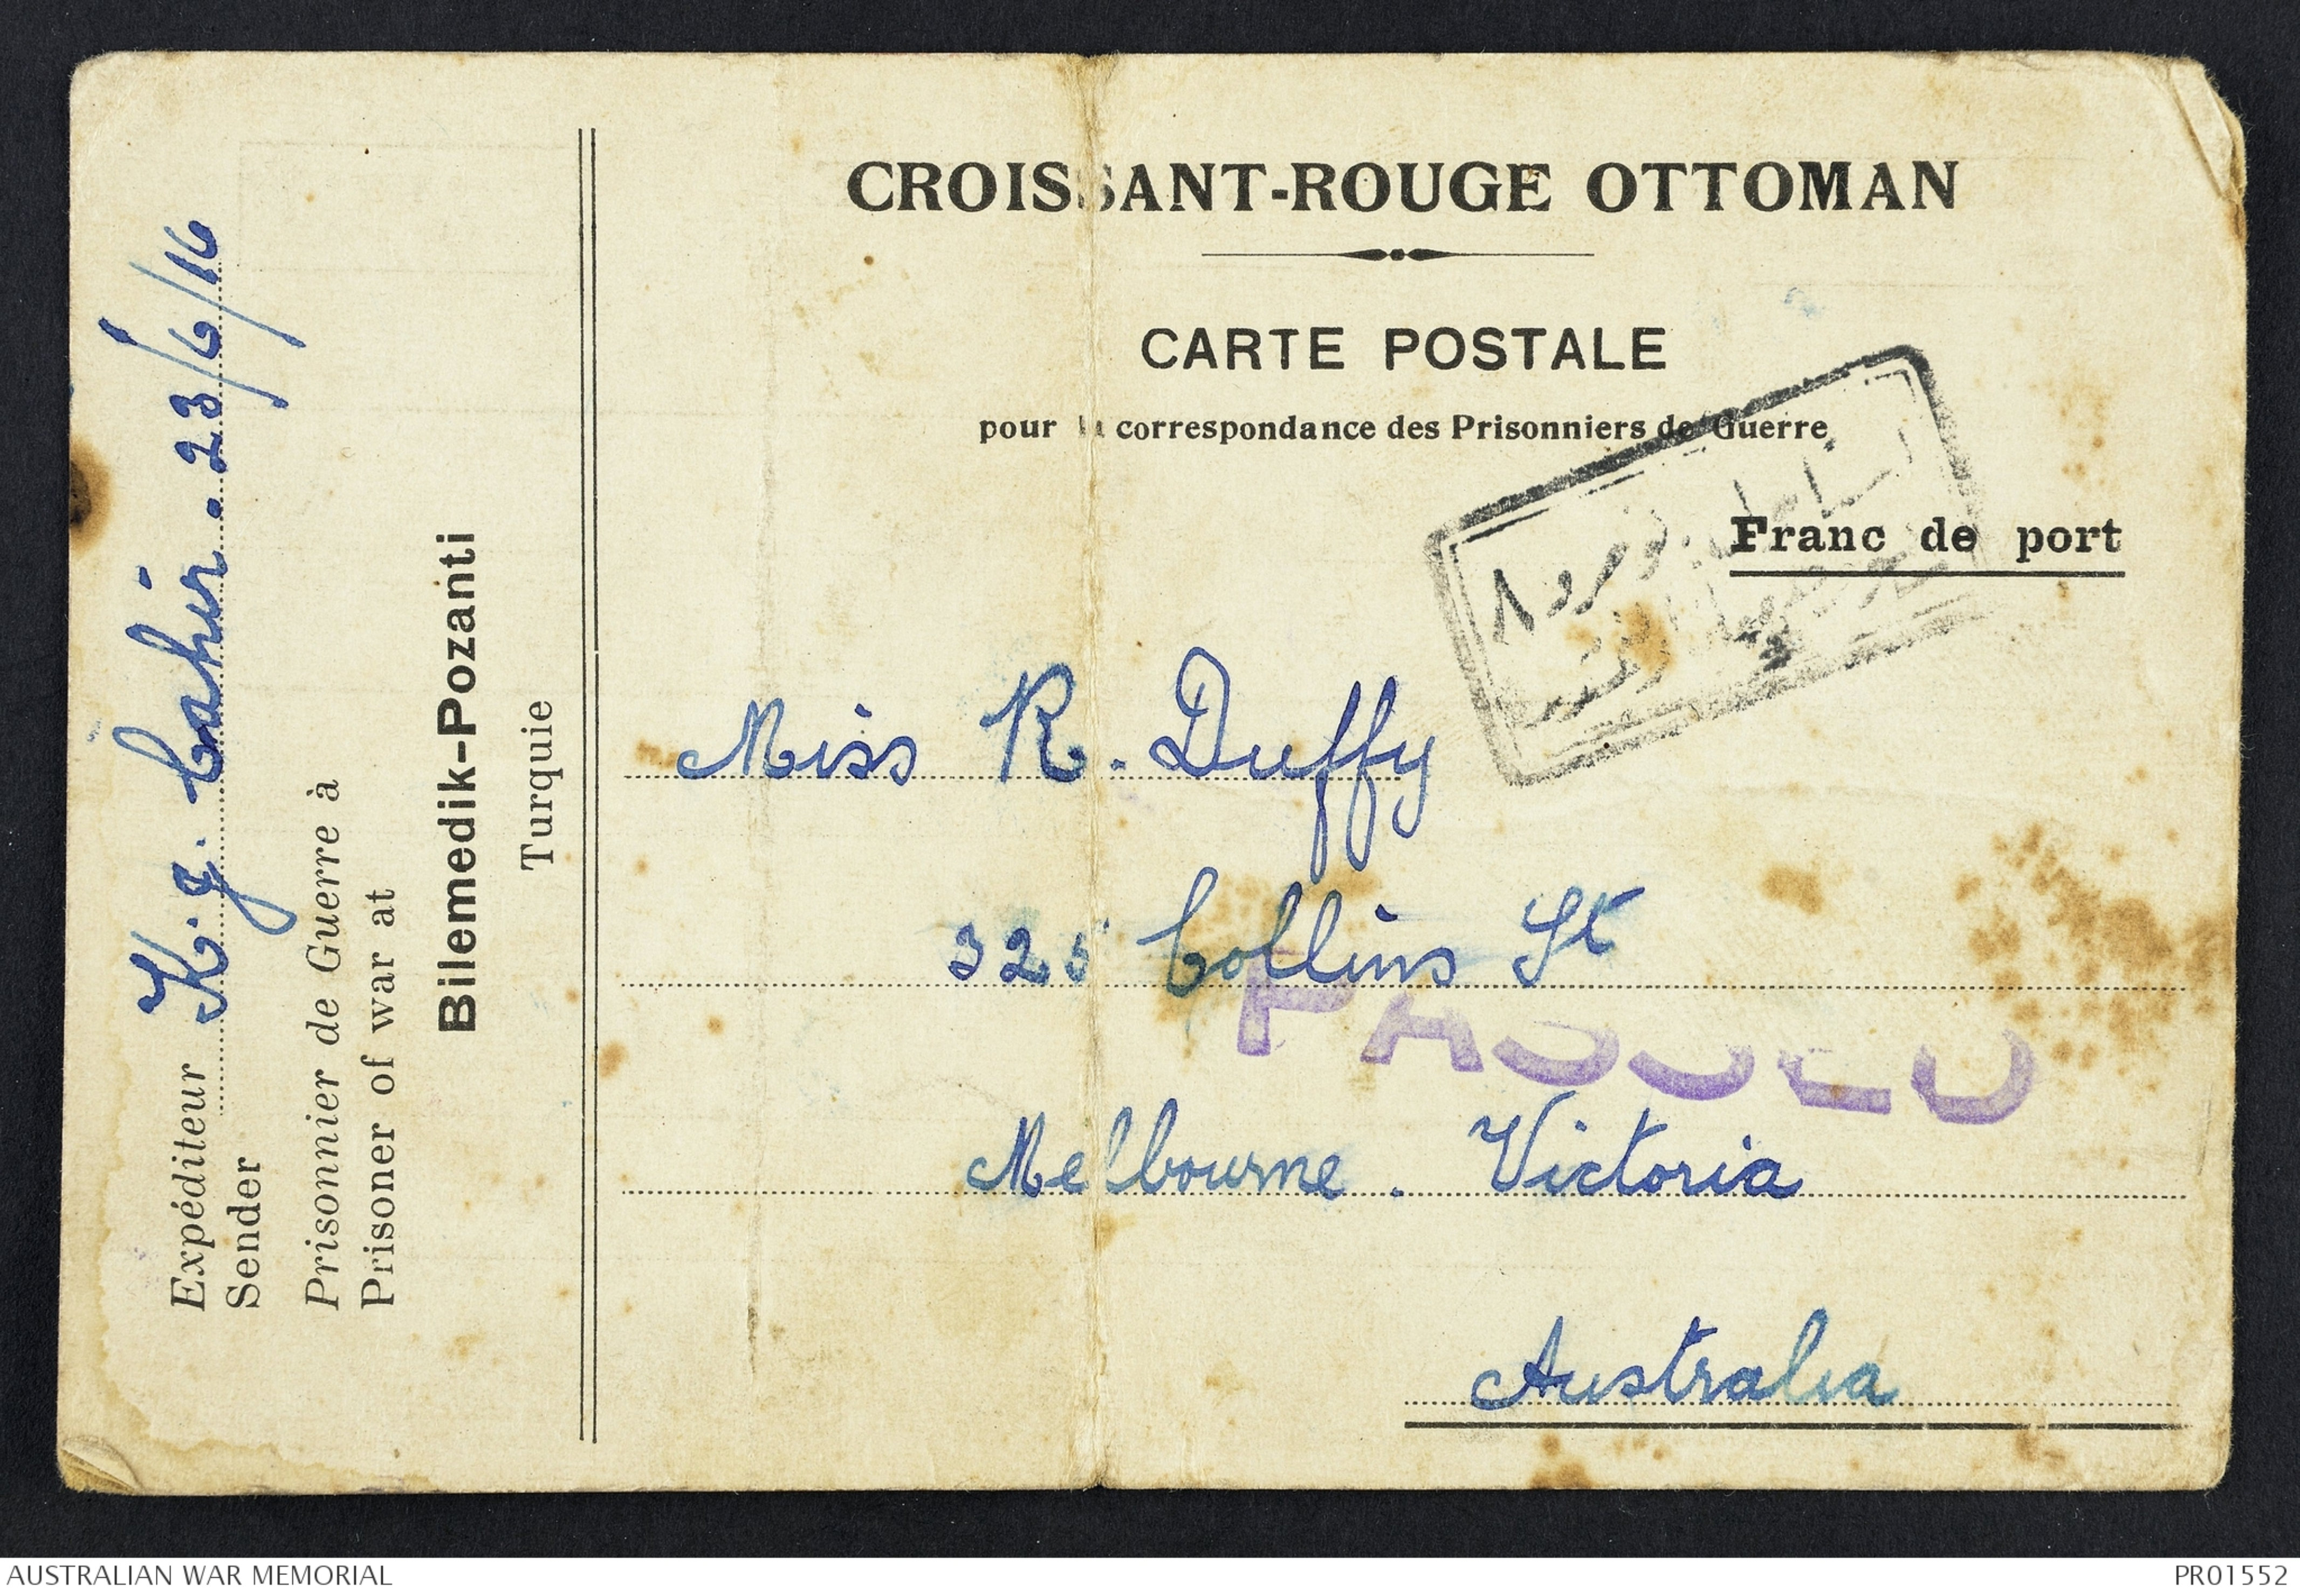 CROISSANT-ROUGE OTTOMAN
CARTE POSTALE
pour la correspondance des Prisonniers de Guerre
Franc de port
Miss R. Duffy
325 Collins St
PASSED
Melbourne. Victoria
Australia
Expéditeur K. J. Cahir. 23/6/16
Sender
Prisonnier de Guerre à
Prisoner of war at
Bilemedik-Pozanti
Turquie
AUSTRALIAN WAR MEMORIAL
PR01552